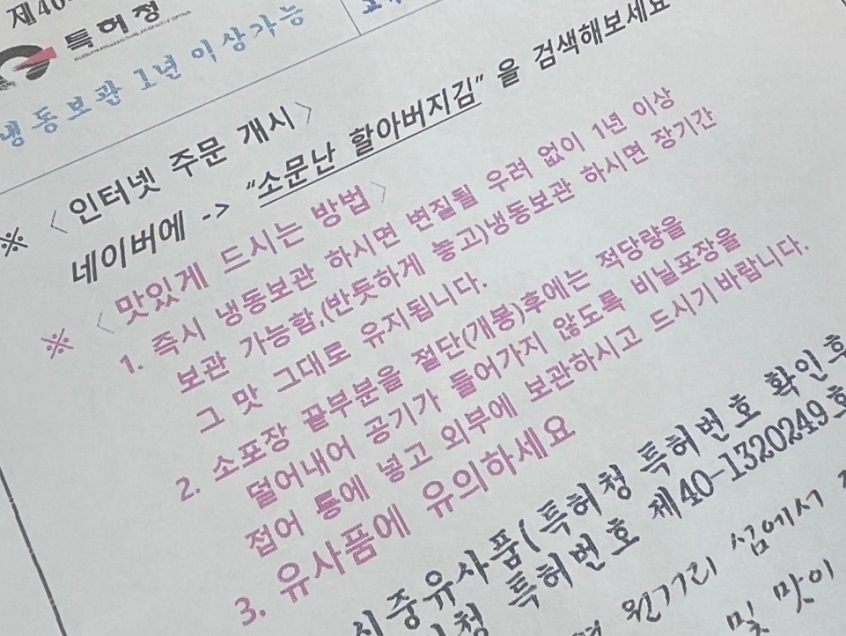 제40
특허청
냉동보관 1년 이상가능
※ <인터넷 주문 개시>
네이버에 -> "소문난 할아버지김" 을 검색해보세요
※ <맛있게 드시는 방법>
1. 즉시 냉동보관 하시면 변질될 우려 없이 1년 이상
보관 가능함.(반듯하게 놓고)냉동보관 하시면 장기간
그 맛 그대로 유지됩니다.
2. 소포장 끝부분을 절단(개봉)후에는 적당량을
덜어내어 공기가 들어가지 않도록 비닐포장을
접어 통에 넣고 외부에 보관하시고 드시기 바랍니다.
3. 유사품에 유의하세요
시중유사품(특허청 특허번호 확인후
청 특허번호 제40-1320249호
원기리 섬에서
및 맛이